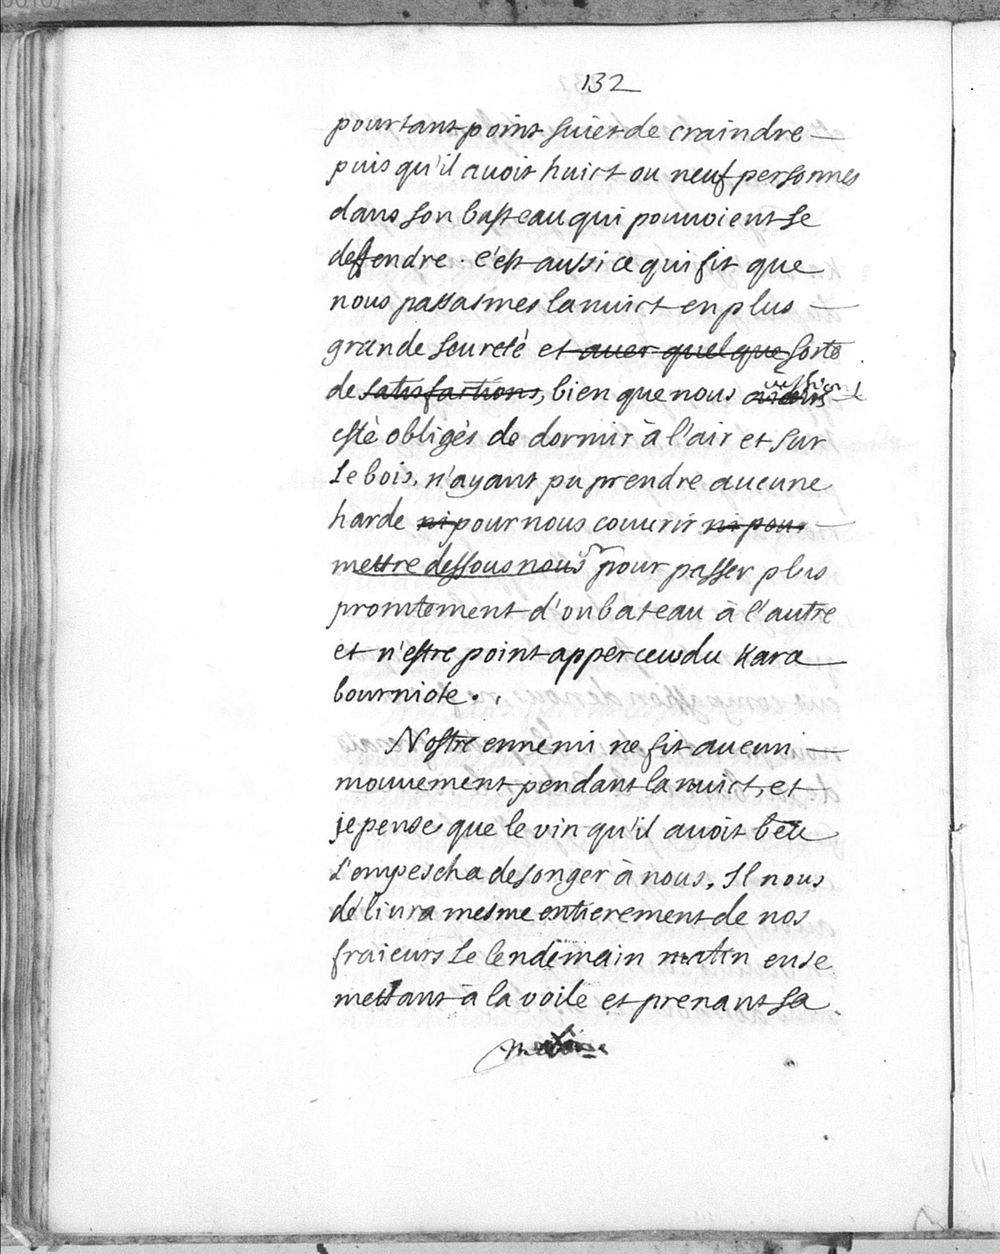 132
pourtant point suiet de craindre
puis qu'il auoit huict ou neuf personnes
dans son basteau qui pouuoient se
deffendre. c'est aussi ce qui fit que
nous passasmes la nuict en plus
grande seureté et auec quelque sorte
de satisfactions, bien que nous eussions
esté obligés de dormir à l'air et sur
le bois, n'ayant pu prendre aucune
harde ni pour nous couurir ni pour
mettre dessous nous pour passer plus
promtement d'un bateau à l'autre
et n'estre point apperceu du Kara
bourniote.
Nostre ennemi ne fit aucun
mouuement pendant la nuict, et
je pense que le vin qu'il auoit beu
l'empescha de songer à nous. Il nous
déliura mesme entierement de nos
fraieurs le lendemain matin en se
mettant à la voile et prenant sa